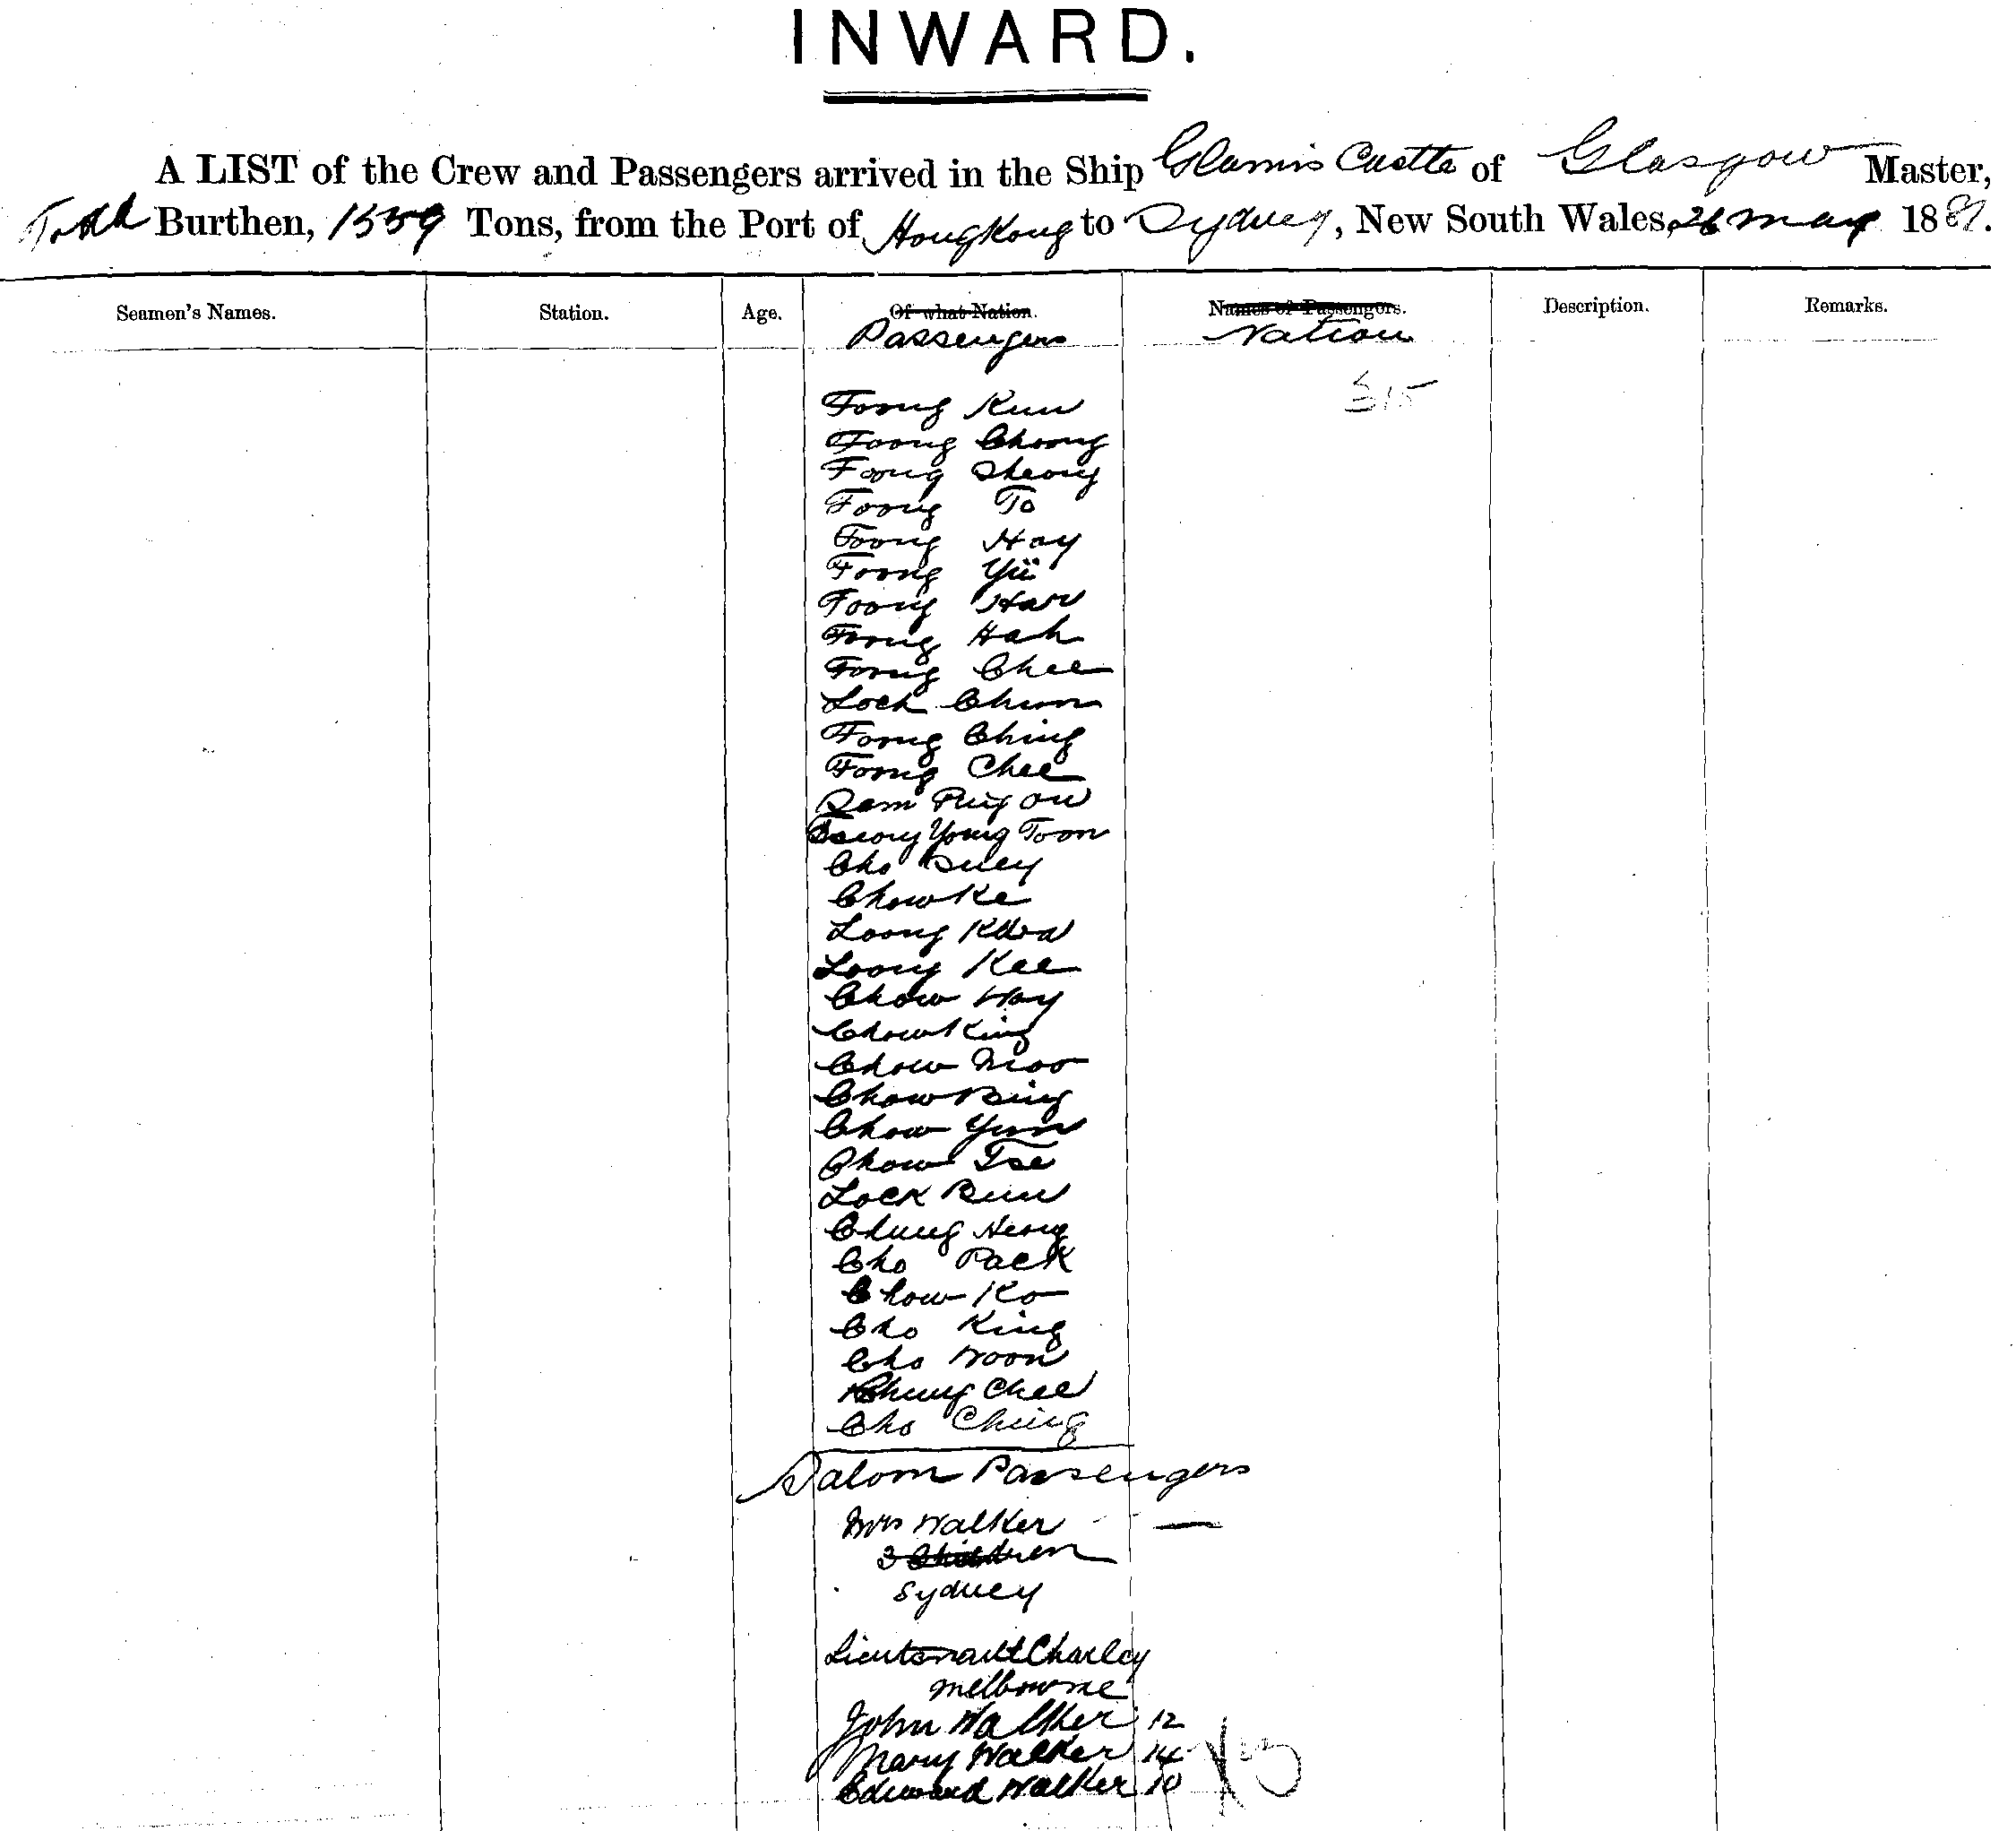 INWARD.
A LIST of the Crew and Passengers arrived in the Ship Glamis Castle of Glasgow Master,
Todd Burthen, 1559 Tons, from the Port of Hong Kong to Sydney, New South Wales, 26 May 188
Seamen's Names. Station. Age. Of what Nation. Names of Passengers. Description. Remarks.
Passengers Nation
315
Foong Kun
Foong Choong
Foong Sheong
Foong To
Foong Hay
Foong Yü
Foong Han
Foong Hah
Foong Chee
Lock Chun
Foong Ching
Foong Chee
Sam Ping On
Young Toon
Cho Suey
Chow Ke
Loong
Loong Kee
Chow Hay
Chow King
Chow Moo
Chow Bing
Chow Yun
Chow Tse
Lock Bun
Chung Heong
Cho Pack
Chow Ko
Cho King
Cho Noon
Chung Chee
Cho Ching
Saloon Passengers
Mrs Walker —
3 Children
Sydney
Lieutenant Charley
Melbourne
John Walker 12
Mary Walker 14
Edward Walker 10